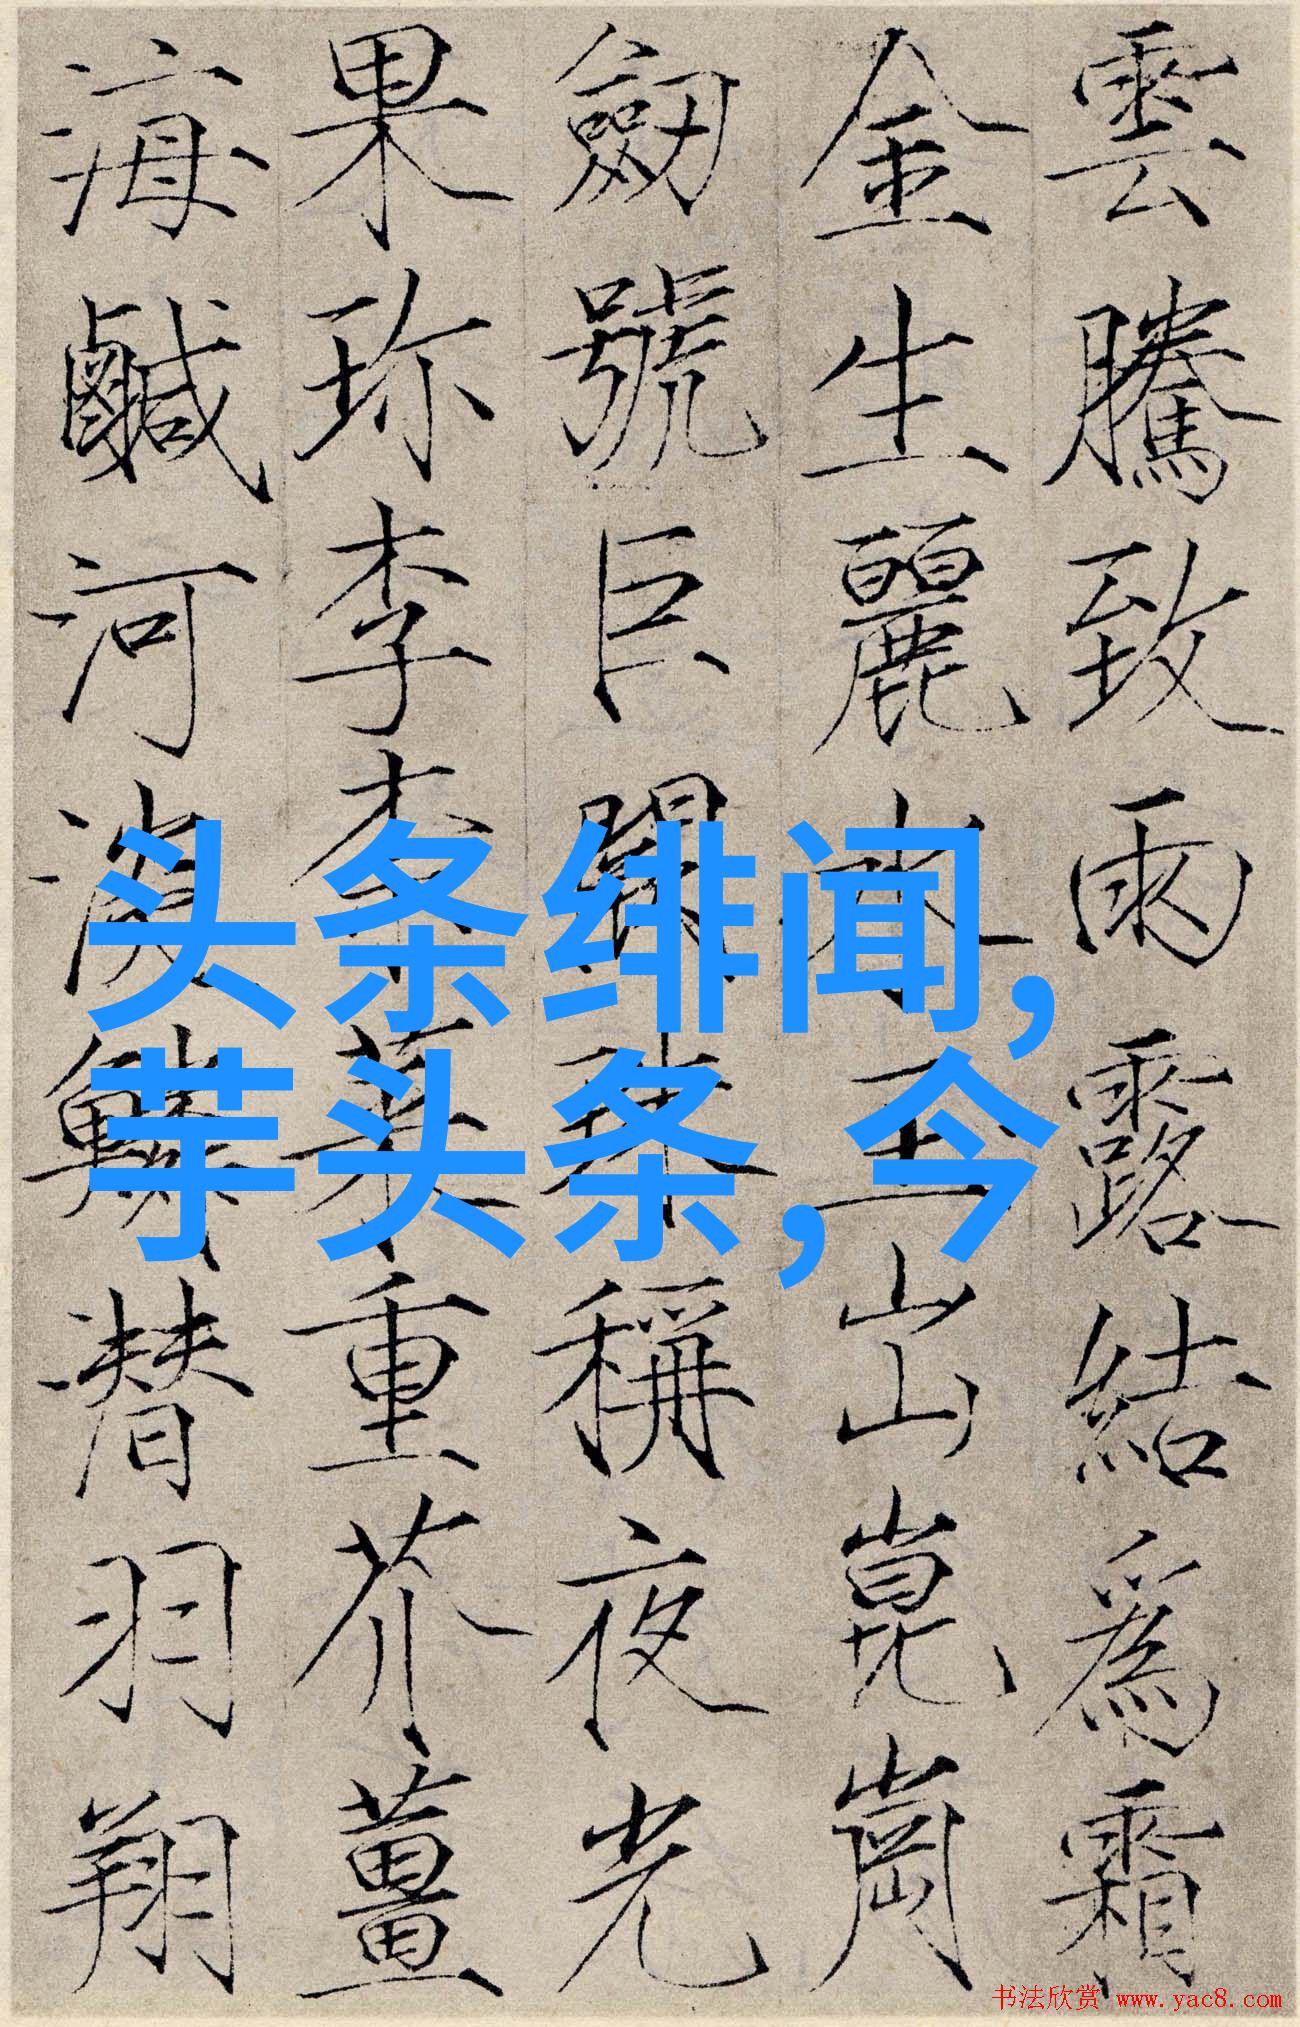 雲騰致雨露結爲霜
金生麗水玉出崑崗
劒號巨闕珠稱夜光
果珎李柰菜重芥薑
海鹹河淡鱗潜羽翔
头条绯闻,
芋头条,今
书法欣赏 www.yac8.com